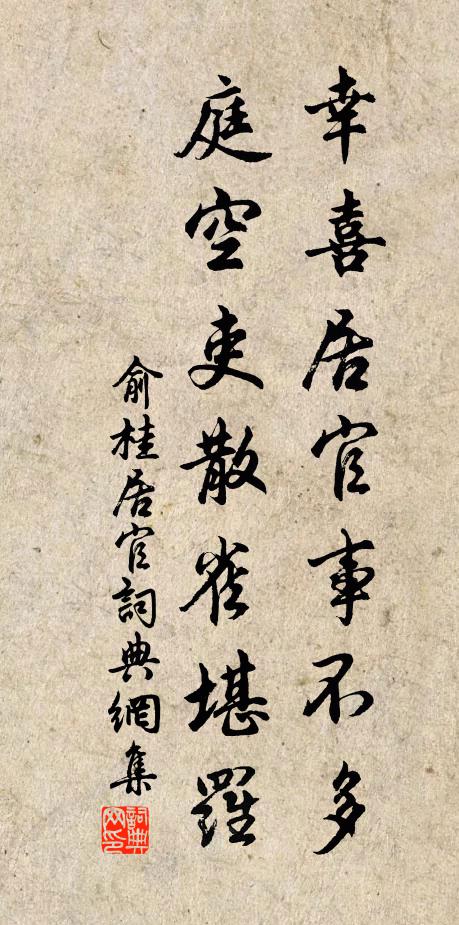 幸喜居官事不多
庭空吏散雀堪羅
俞桂居官詞典網集
詞典網印